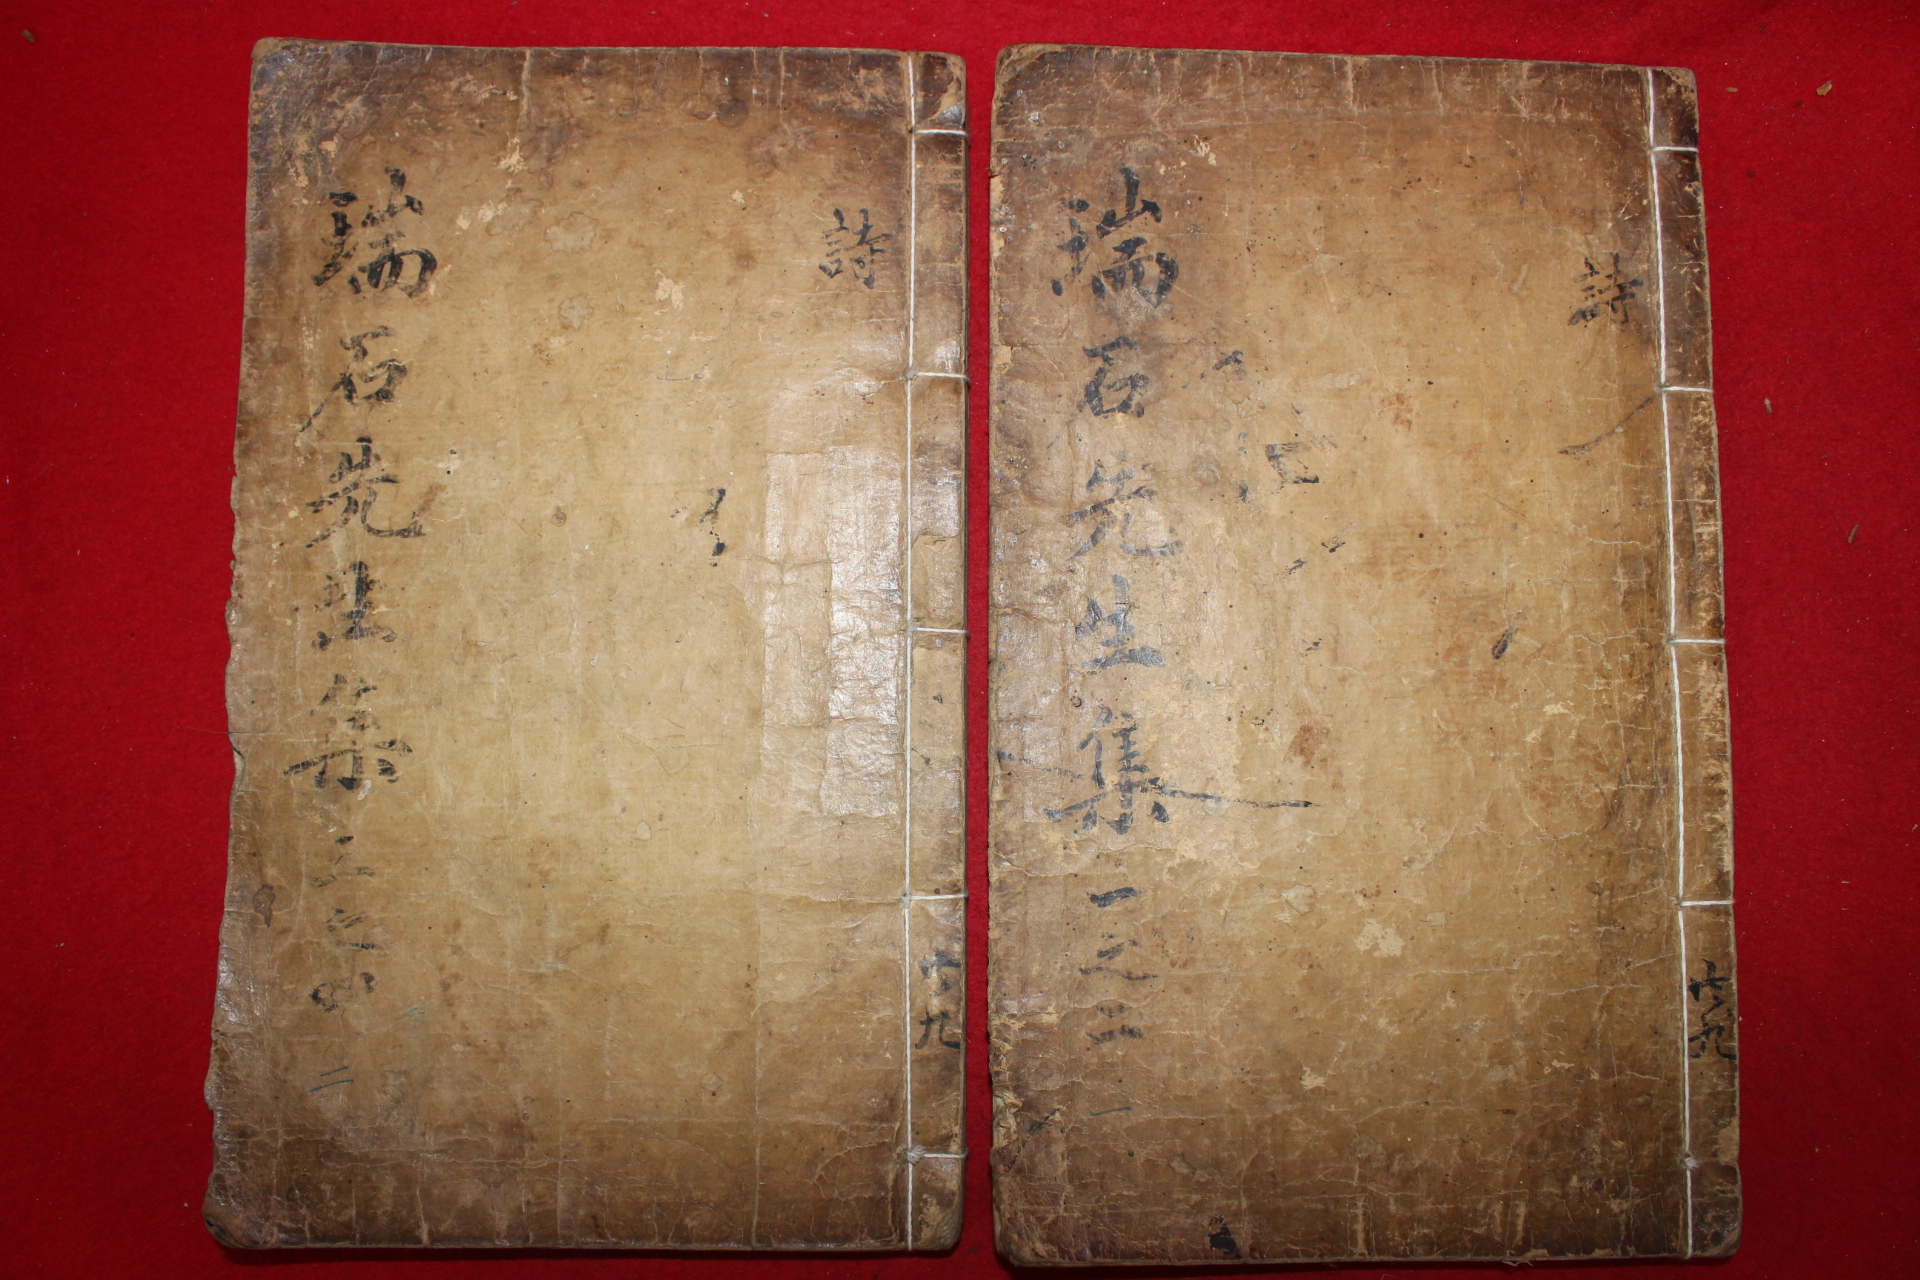 詩
瑞石先生集 一之二
一
詩
瑞石先生集 三之四
二
九